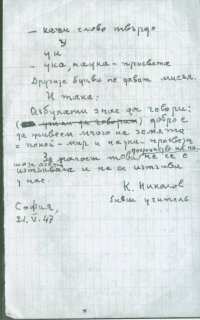 – кажи слово твърдо
У
ук
– ука наука – просвета
Другите букви не дават мисъл.
И така:
Азбуката знае да говори:
да говори) добре е
да живеем много на земята
с покой – мир и наука, просвета
За жалост това не се е
изпълвало и не се изпълва
у нас.
К. Николов
бивш учител
София
21.VI.47